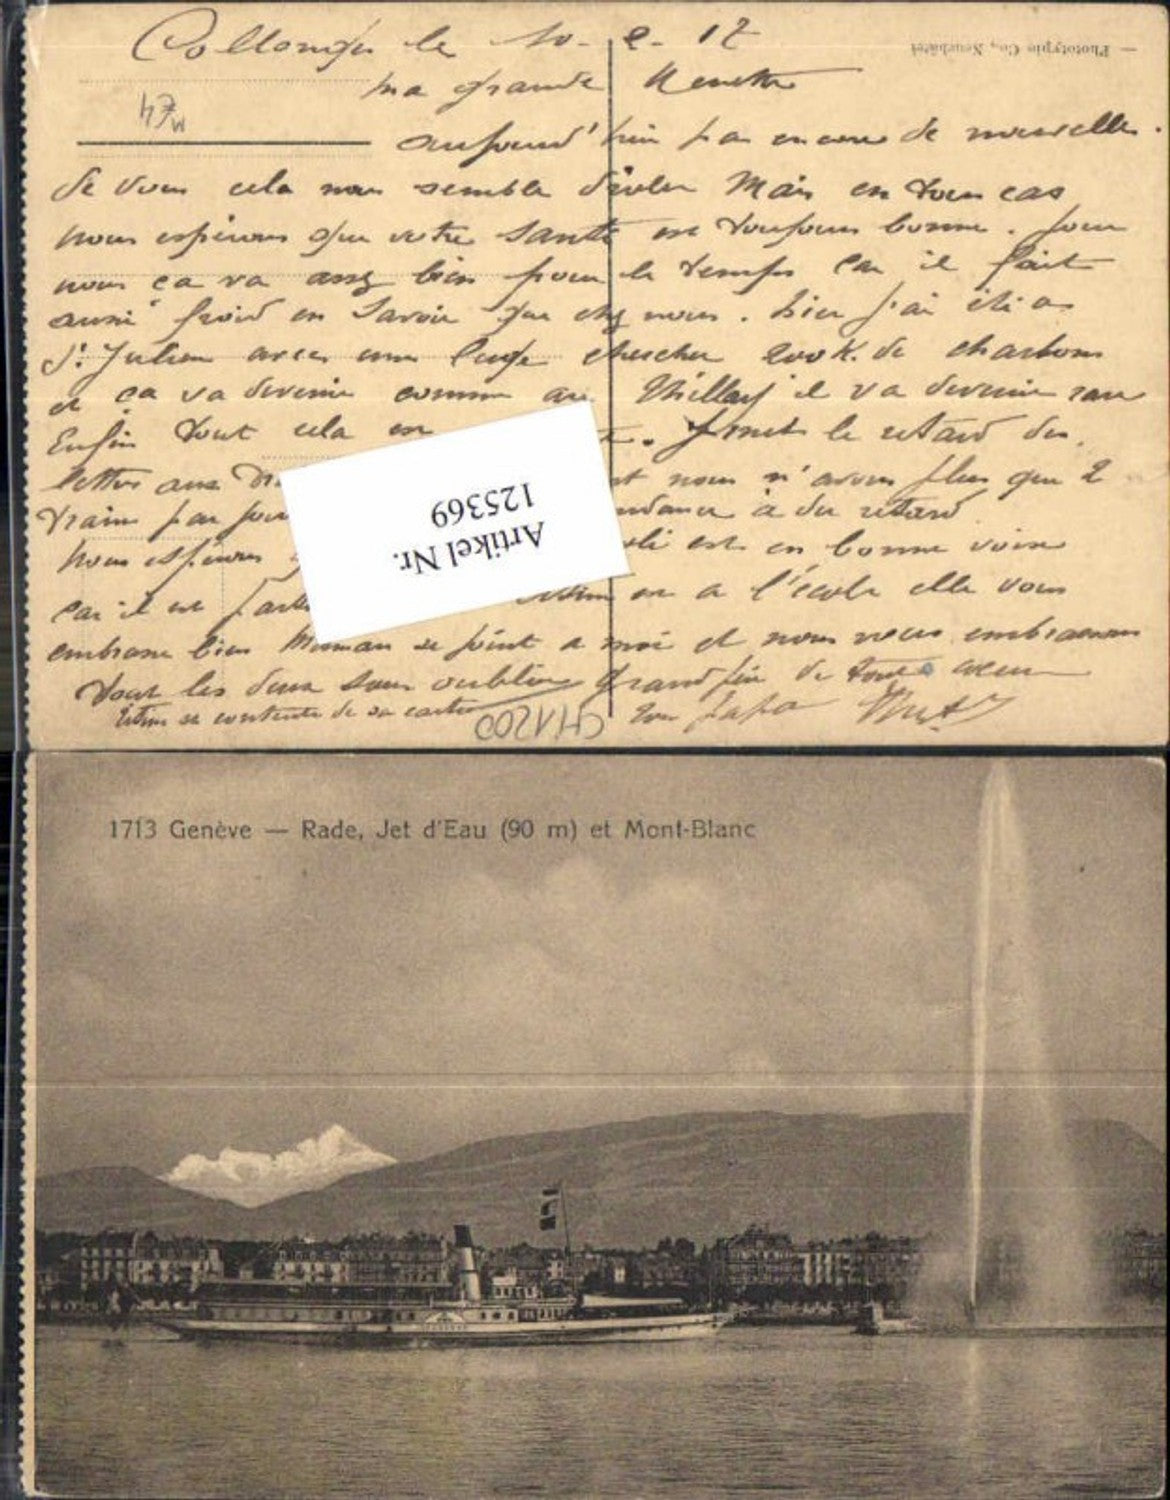 Collonges le 10-2-17
ma grande
aujourd'hui pas encore de nouvelles.
de vous cela nous semble drôles Mais en tous cas
nous espérons que votre santé est toujours bonne. pour
nous ça va assez bien pour le temps car il fait
aussi froid en Savoie que chez nous. hier j'ai été a
St Julien avec une luge chercher 200 K. de charbons
et ça va devenir comme au il va devenir rare
Enfin tout cela est le retard des
lettres aux nous n'avons plus que 2
trains par jour à du retard
Nous espérons est en bonne voie
car il est a l'école elle vous
embrasse bien Maman se joint a moi et nous vous embrassons
tout les deux sans oublier Grand de tout cœur
se contente de sa carte ton Papa
CH1200
— Phototypie Co., Neuchâtel
Artikel Nr.
125369
1713 Genève — Rade, Jet d'Eau (90 m) et Mont-Blanc